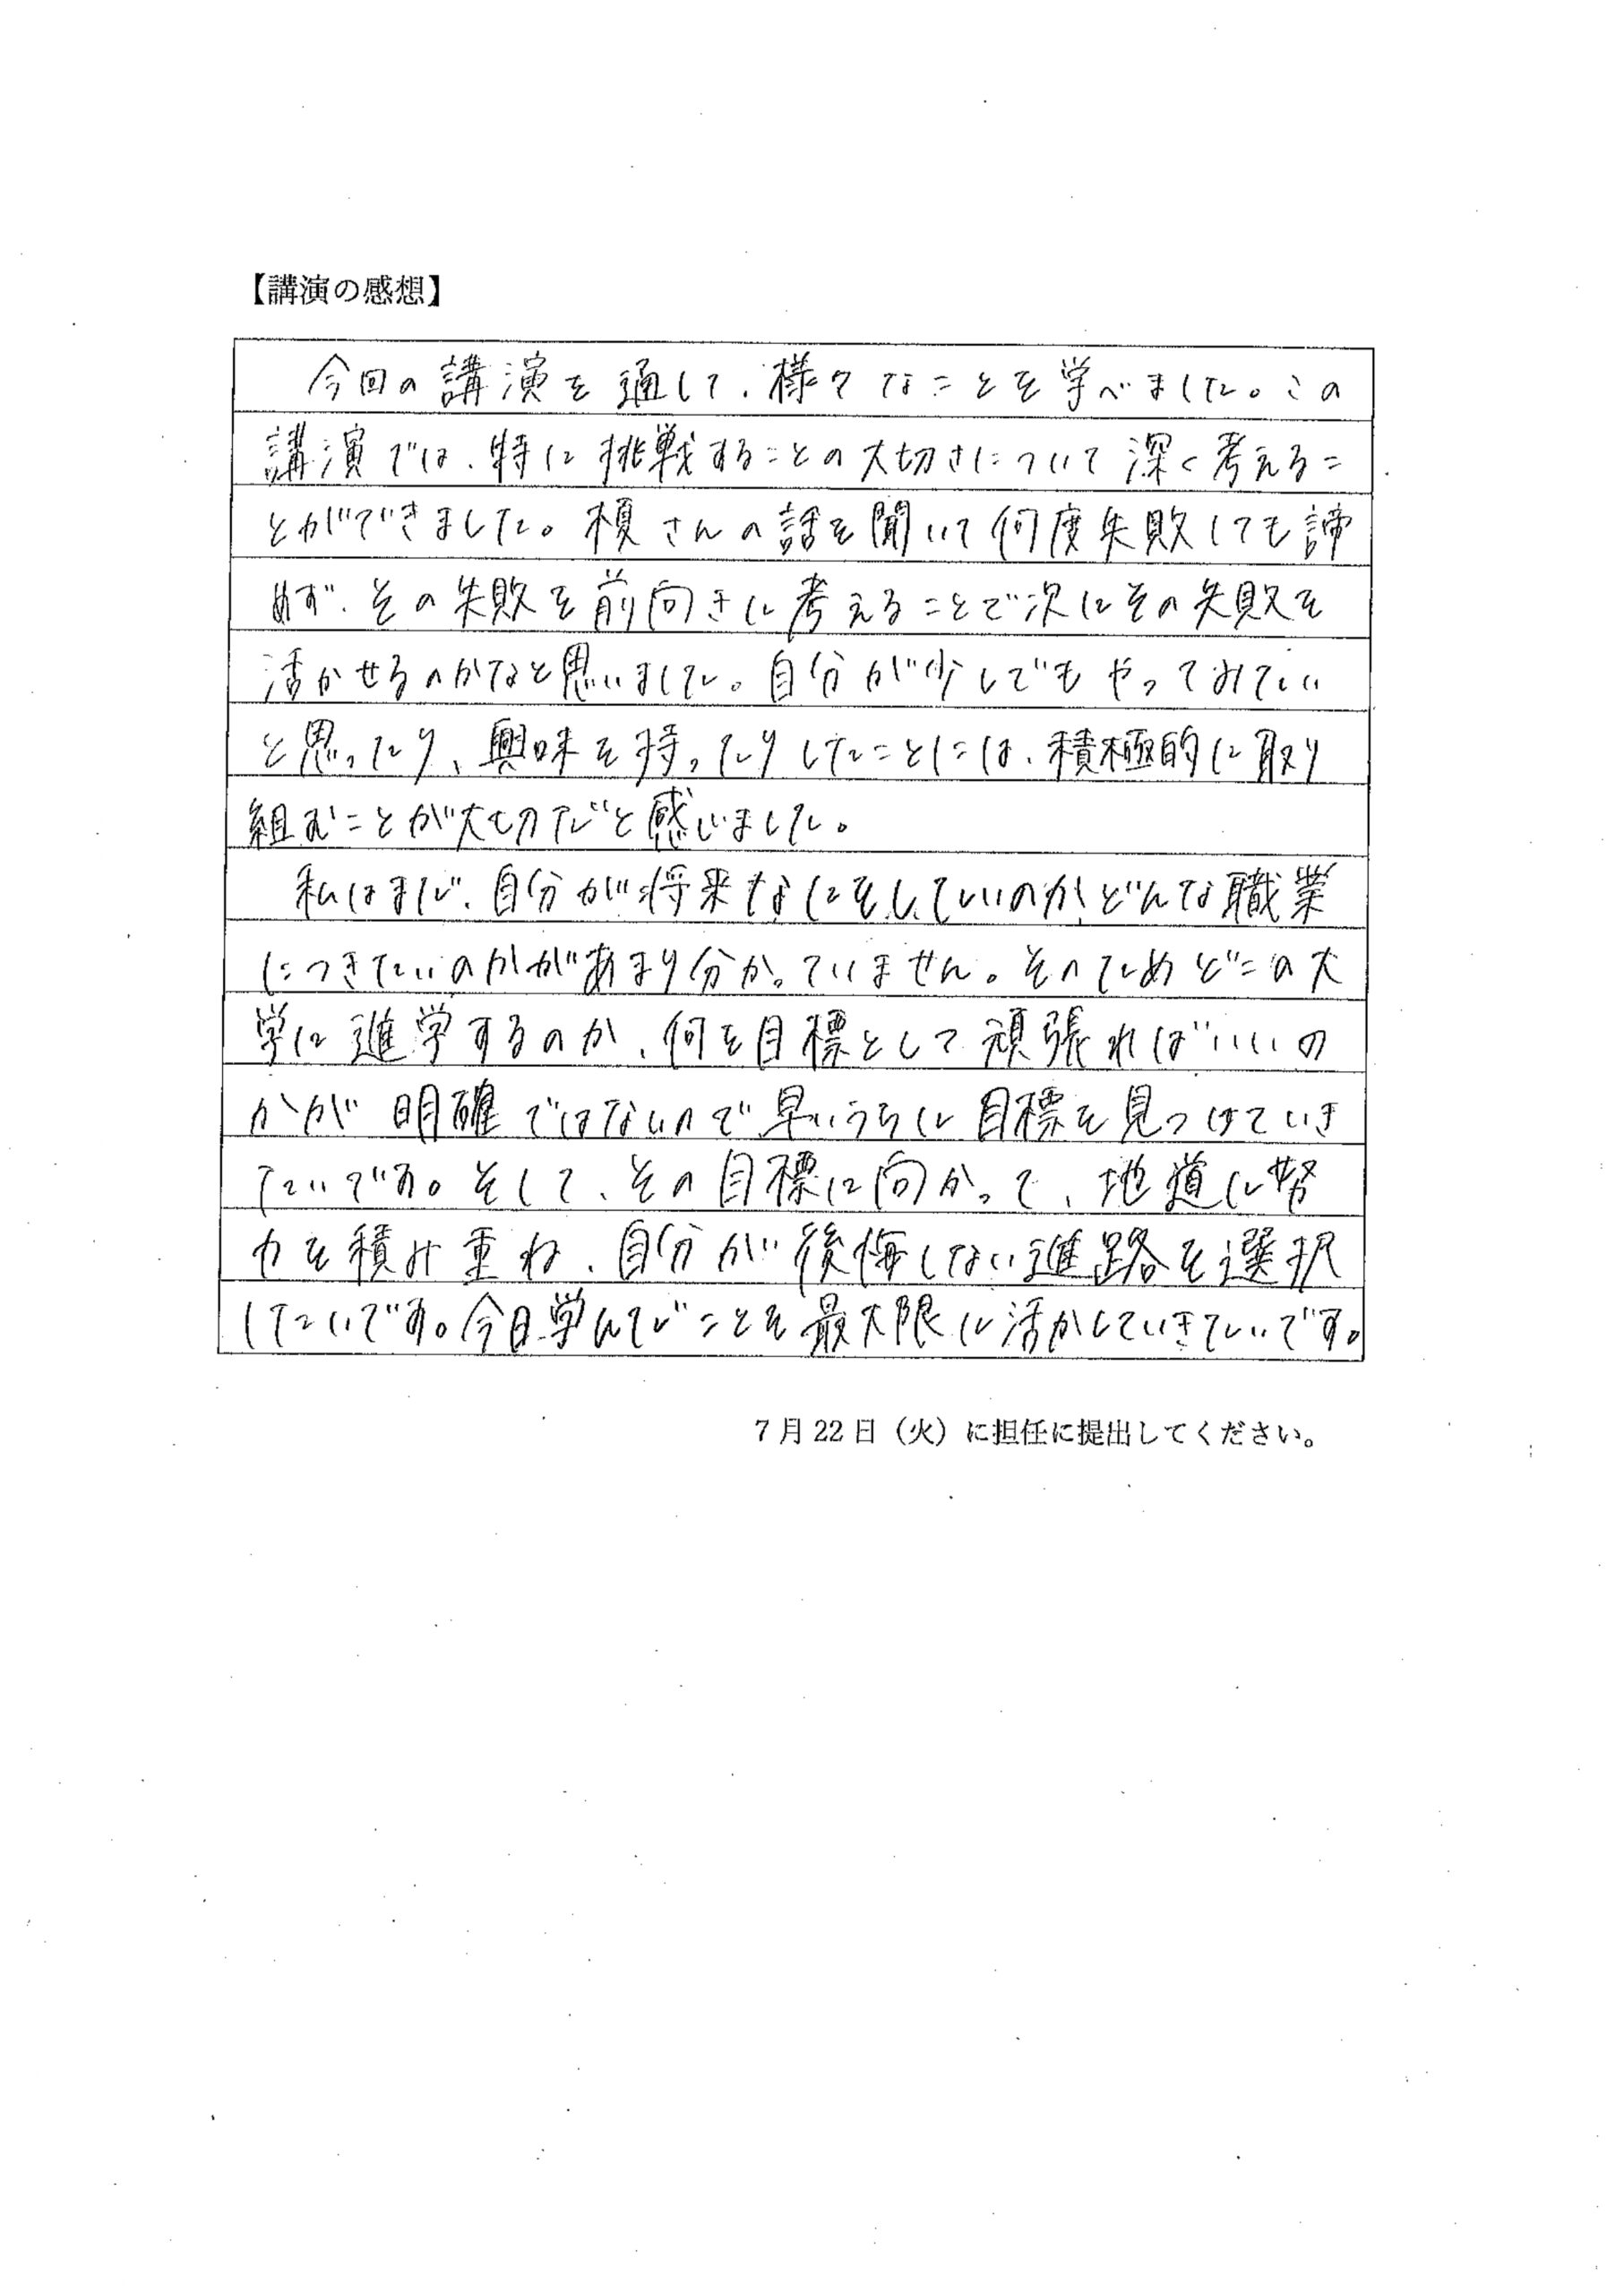 【講演の感想】
今回の講演を通して、様々なことを学べました。この
講演では、特に挑戦することの大切さについて深く考えるこ
とができました。榎さんの話を聞いて何度失敗しても諦
めず、その失敗を前向きに考えることで次にその失敗を
活かせるのかなと思いました。自分が少しでもやってみたい
と思ったり、興味を持ったりしたことには、積極的に取り
組むことが大切だと感じました。
私はまだ、自分が将来なにをしたいのか、どんな職業
につきたいのかがあまり分かっていません。そのためどこの大
学に進学するのか、何を目標として頑張ればいいの
かが明確ではないので早いうちに目標を見つけていき
たいです。そして、その目標に向かって、地道に努
力を積み重ね、自分が後悔しない進路を選択
したいです。今日学んだことを最大限に活かしていきたいです。
7月22日（火）に担任に提出してください。